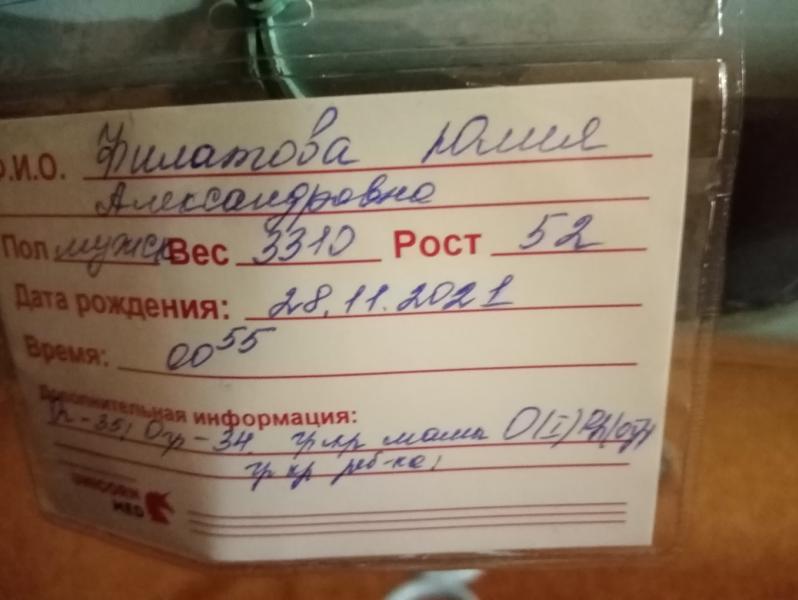 Ф.И.О. Филатова Юлия
Александровна
Пол мужск Вес 3310 Рост 52
Дата рождения: 28.11.2021
Время: 00 55
Дополнительная информация:
Ог - 34, гр кр мамы O(I) Rh(отр)
гр кр реб-ка,
UNICORN
MED